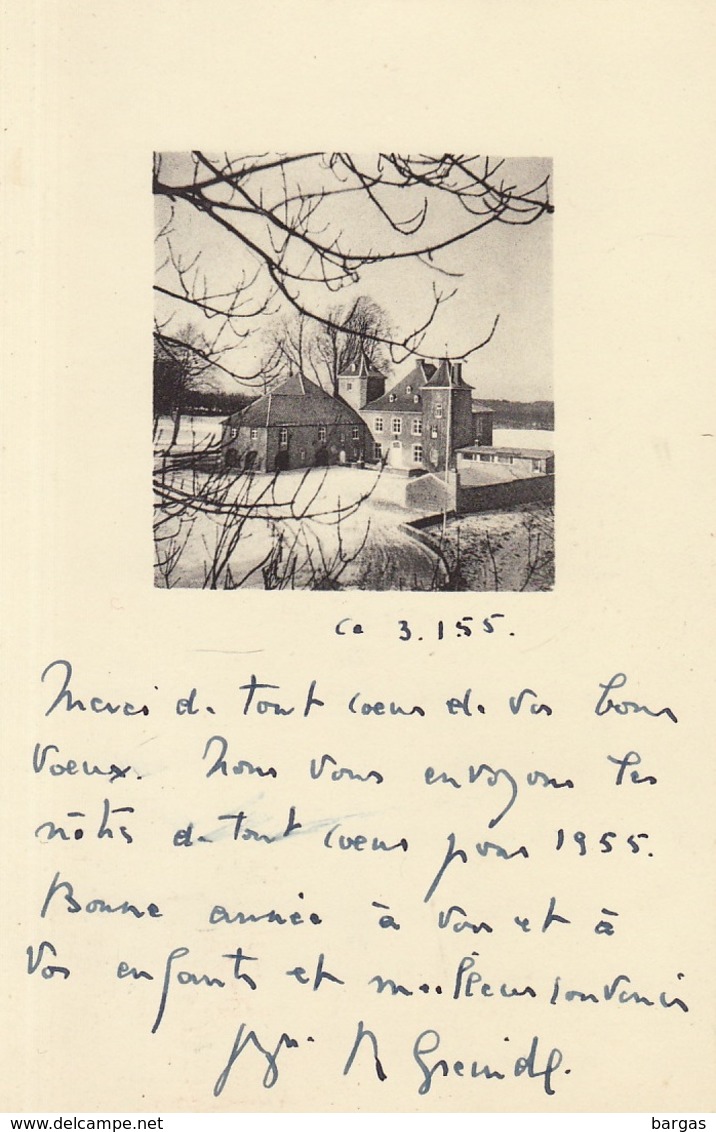 Ce 3.1.55.
Merci de tout coeur de vos bons
voeux. Nous vous envoyons les
nôtres de tout coeur pour 1955.
Bonne année à vous et à
vos enfants et meilleurs souvenirs
Greindl.
delcampe.net
bargas